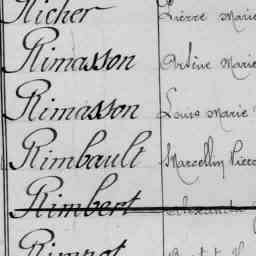 Richer Pierre Marie
Rimasson Arsène Marie
Rimasson Louis Marie
Rimbault Marcellin Pierre
Rimbert Alexandre